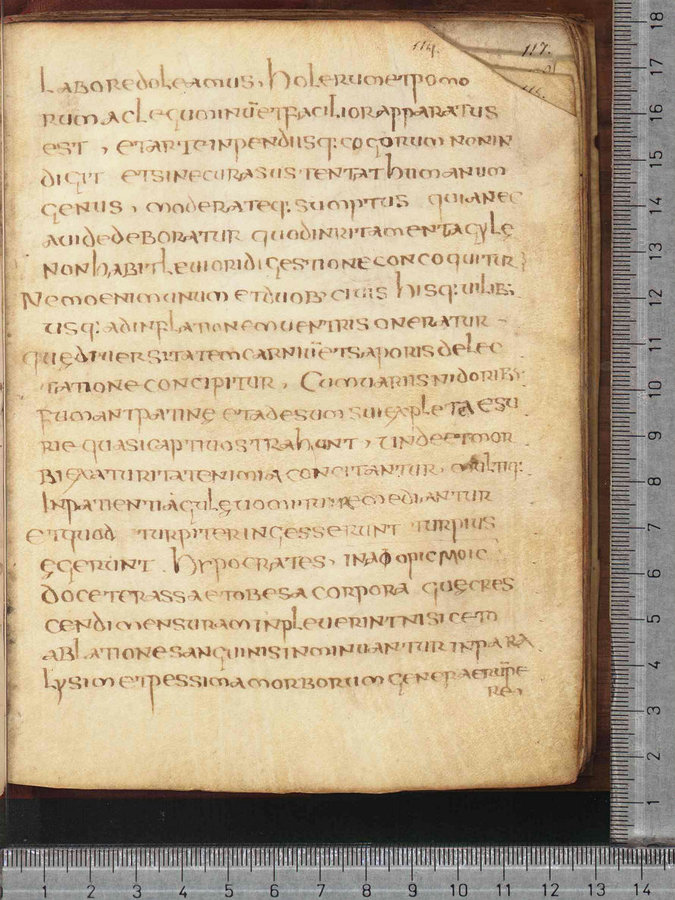 114.
117.
116.
laboredoleamus, holerum et pomo
rum ac leguminū et facilior apparatus
est, et arte inpendiisq: cocorum non in
digit et sine cura sustentat humanum
genus, moderateq: sumptus quia nec
auide deboratur quod inritamenta gulę
non habit leuiori digestione concoquitur
Nemo enim unum et duob: ciuis hisq: uilib:
usq: ad inflationem uentris oneratur
quę diuersitatem carniū et saporis delec
tatione concipitur, Cum uariis nidorib:
fumant patinę et ad esum sui expleta esu
rie quasi captiuos trahunt, unde et mor
bi ex aturitate nimia concitantur, multiq:
Inpatientiā gulę uomitu remediantur
et quod turpiter ingesserunt turpius
egerunt. hypocrates, in aφopicmoic
docet crassa et obesa corpora quę cres
cendi mensuram inpleuerint nisi cito
ablatione sanguinis inminuantur in para
lysim et pessima morborum genera erūpe
re,
18
17
16
15
14
13
12
11
10
9
8
7
6
5
4
3
2
1
1 2 3 4 5 6 7 8 9 10 11 12 13 14